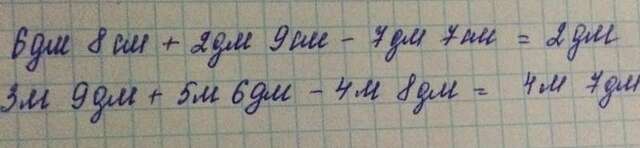 6дм 8см + 2дм 9см - 7дм 7см = 2дм
3м 9дм + 5м 6дм - 4м 8дм = 4м 7дм